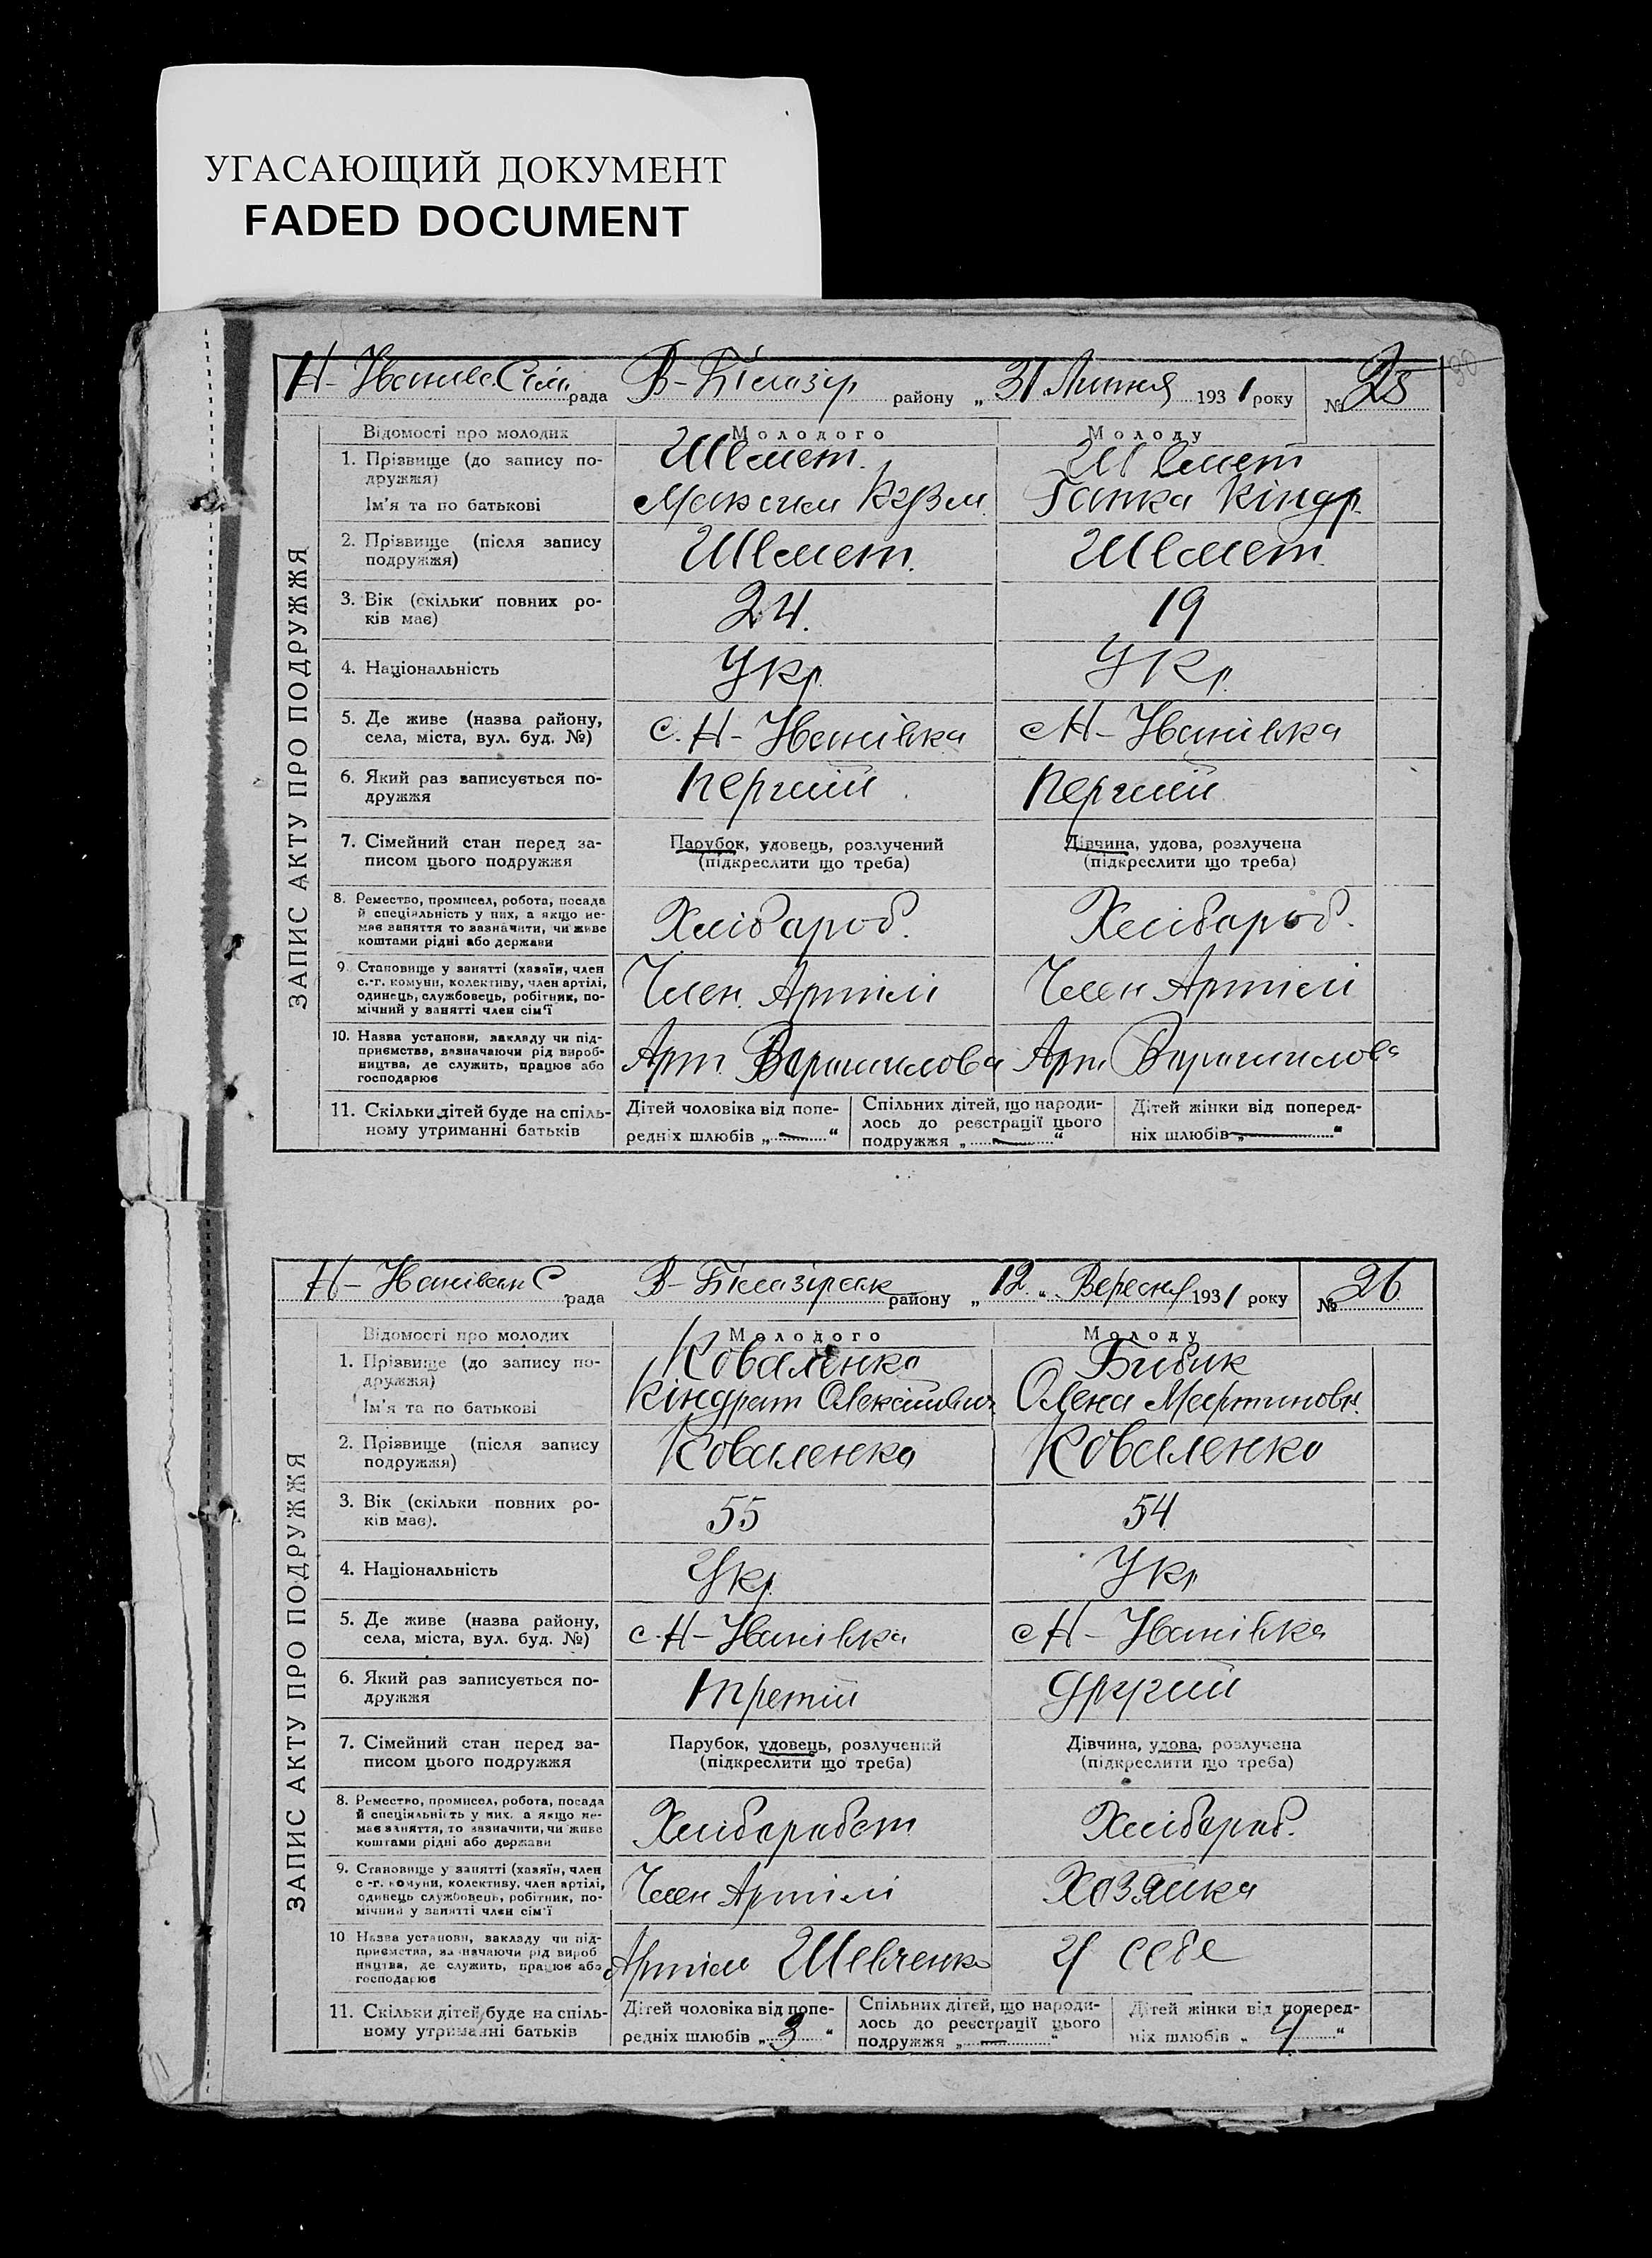 УГАСАЮЩИЙ ДОКУМЕНТ
FADED DOCUMENT
Н-Іванівс. Сіль рада В-Білазір району „ 31 Липня 1931 року № 25
ЗАПИС АКТУ ПРО ПОДРУЖЖЯ
Відомості про молодих Молодого Молоду
1. Прізвище (до запису по-
дружжя) Швмет. Швмет
Ім'я та по батькові Максим Кузм. Ганка Кіндр.
2. Прізвище (після запису
подружжя) Швмет. Швмет.
3. Вік (скільки повних ро-
ків має) 24. 19
4. Національність Укр. Укр.
5. Де живе (назва району,
села, міста, вул. буд. №) с. Н-Іванівка с Н-Іванівка
6. Який раз записується по-
дружжя перший перший
7. Сімейний стан перед за- Парубок, удовець, розлучений Дівчина, удова, розлучена
писом цього подружжя (підкреслити що треба) (підкреслити що треба)
8. Ремество, промисел, робота, посада
й спеціяльність у них, а якщо не-
має заняття то зазначити, чи живе
коштами рідні або держави Хлібароб. Хлібароб.
9. Становище у занятті (хазяїн, член
с.-г. комуни, колективу, член артілі,
одинець, службовець, робітник, по-
мічний у занятті член сім'ї Член Артілі Член Артілі
10. Назва установи, закладу чи під-
приємства, зазначаючи рід вироб-
ництва, де служить, працює або
господарює Арт. Ворашилова Арт. Ворашилова
11. Скільки дітей буде на спіль- Дітей чоловіка від попе- Спільних дітей, що народи- Дітей жінки від поперед-
ному утриманні батьків редніх шлюбів „ — “ лось до реєстрації цього ніх шлюбів „ — “
подружжя „ — “
Н-Іванівськ С рада В-Білазірськ району „ 12 “ Вересня 1931 року № 26
ЗАПИС АКТУ ПРО ПОДРУЖЖЯ
Відомості про молодих Молодого Молоду
1. Прізвище (до запису по-
дружжя) Коваленко Бибик
Ім'я та по батькові Кіндрат Олексійович Олена Мартиновн.
2. Прізвище (після запису
подружжя) Коваленко Коваленко
3. Вік (скільки повних ро-
ків має). 55 54
4. Національність Укр. Укр
5. Де живе (назва району,
села, міста, вул. буд. №) с. Н-Іванівка с Н-Іванівка
6. Який раз записується по-
дружжя третій другий
7. Сімейний стан перед за- Парубок, удовець, розлучений Дівчина, удова, розлучена
писом цього подружжя (підкреслити що треба) (підкреслити що треба)
8. Ремество, промисел, робота, посада
й спеціяльність у них, а якщо не-
має заняття, то зазначити, чи живе
коштами рідні або держави Хлібаробст Хлібароб.
9. Становище у занятті (хазяїн, член
с-г. комуни, колективу, член артілі,
одинець службовець, робітник, по-
мічний у занятті член сім'ї Член Артілі Хозяйка
10 Назва установи, закладу чи під-
приємства, зазначаючи рід вироб
ництва, де служить, працює або
господарює Артіль Шевченко У себе
11. Скільки дітей буде на спіль- Дітей чоловіка від попе- Спільних дітей, що народи- Дітей жінки від поперед-
ному утриманні батьків редніх шлюбів „ 3 “ лось до реєстрації цього ніх шлюбів „ 4 “
подружжя „ — “